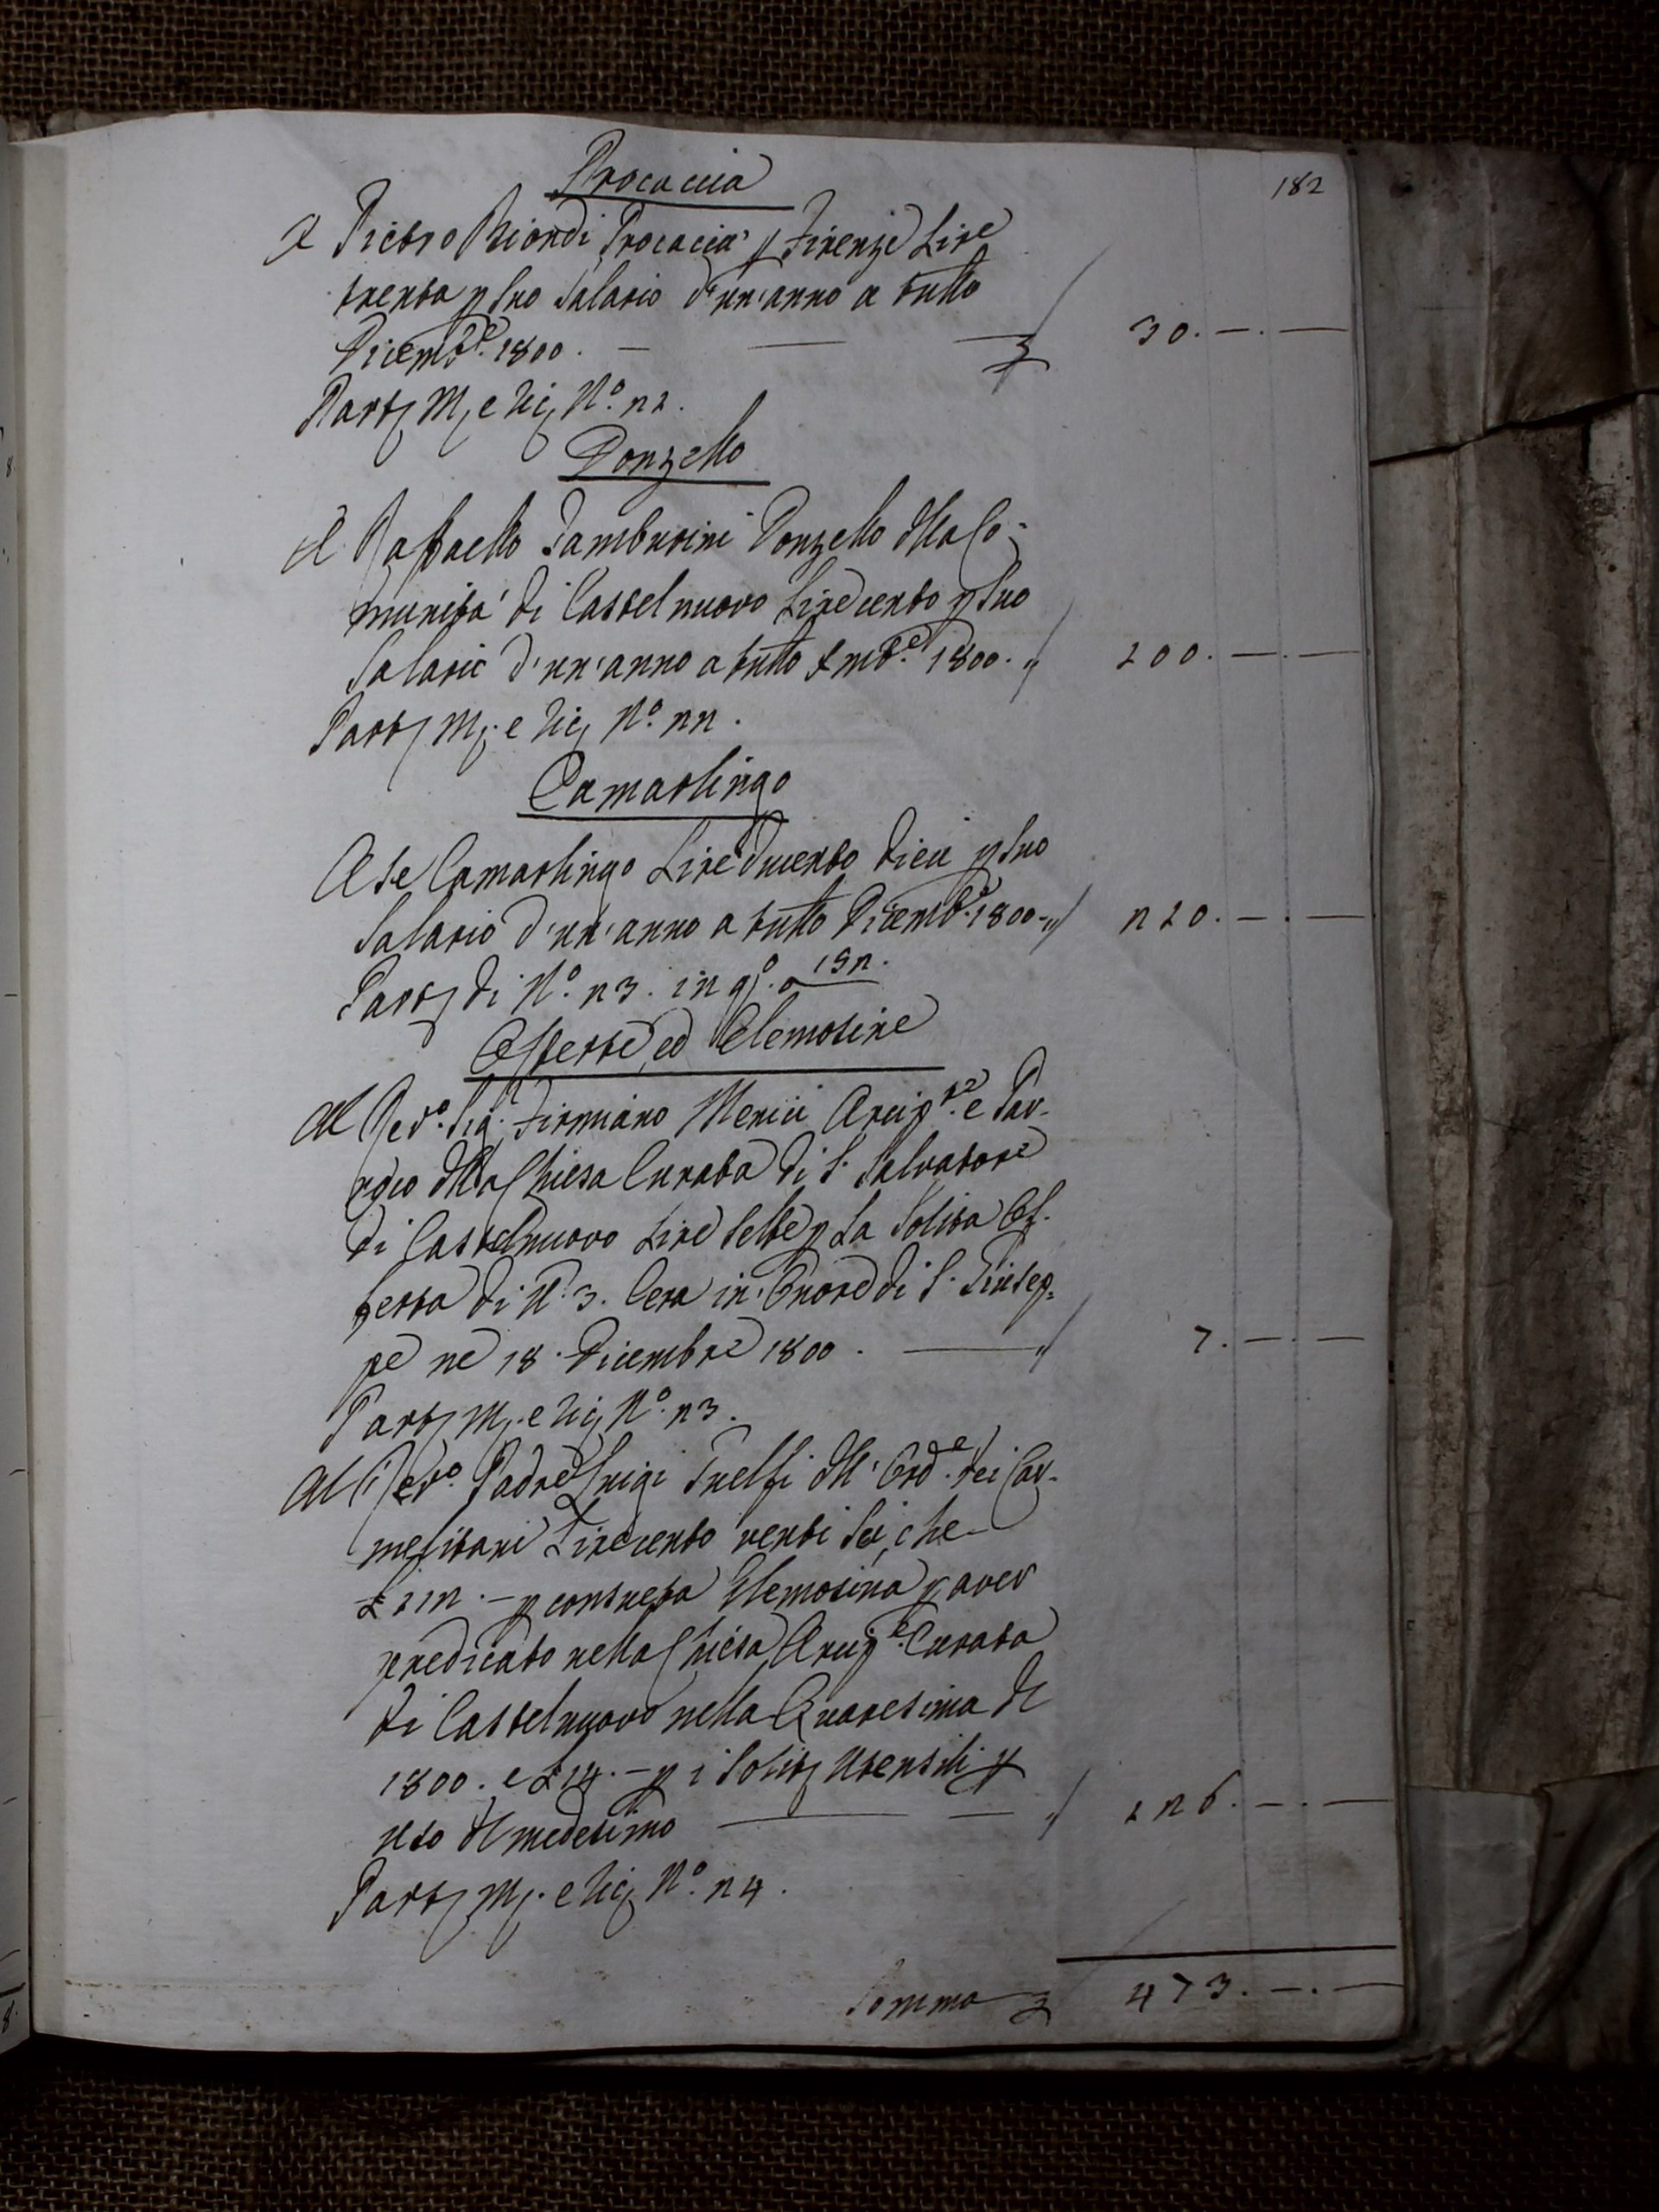 182
Procaccia
A Pietro Biondi Procaccia p Firenze Lire
trenta p suo Salario d'un'anno a tutto
Dicembe. 1800. — — 30. — . —
Part M, e Ric N.o 21.
Donzello
A Raffaello Tamburini Donzello della Co=
munità di Castelnuovo Lire cento p suo
Salario d'un'anno a tutto Xmbe. 1800. 100. — . —
Part M. e Ric N.o 22.
Camarlingo
A se Camarlingo Lire ducento dieci p suo
Salario d'un'anno a tutto Dicembe. 1800 210. — . —
Part di N.o 23. in q.o a 152.
Offerte, ed Elemosine
Al Revo. Sig. Firmiano Menici Arcipte. e Par-
roco della Chiesa Curata di S. Salvatore
di Castelnuovo Lire sette p La Solita Of-
ferta di 3. Cera in Onore di S. Giusep-
pe ne 18. Dicembre 1800. — 7. — . —
Part M. e Ric N.o 23.
Al Revo. Padre Luigi Guelfi dell'Orde. dei Car-
melitani Lire cento venti sei, che
£ 112. — p consueta Elemosina p aver
predicato nella Chiesa Arcipe. Curata
di Castelnuovo nella Quaresima del
1800. e £ 14. — p i Soliti Utensili p
uso del medesimo — 126. — . —
Part M. e Ric N.o 24.
Somma 473. — . —